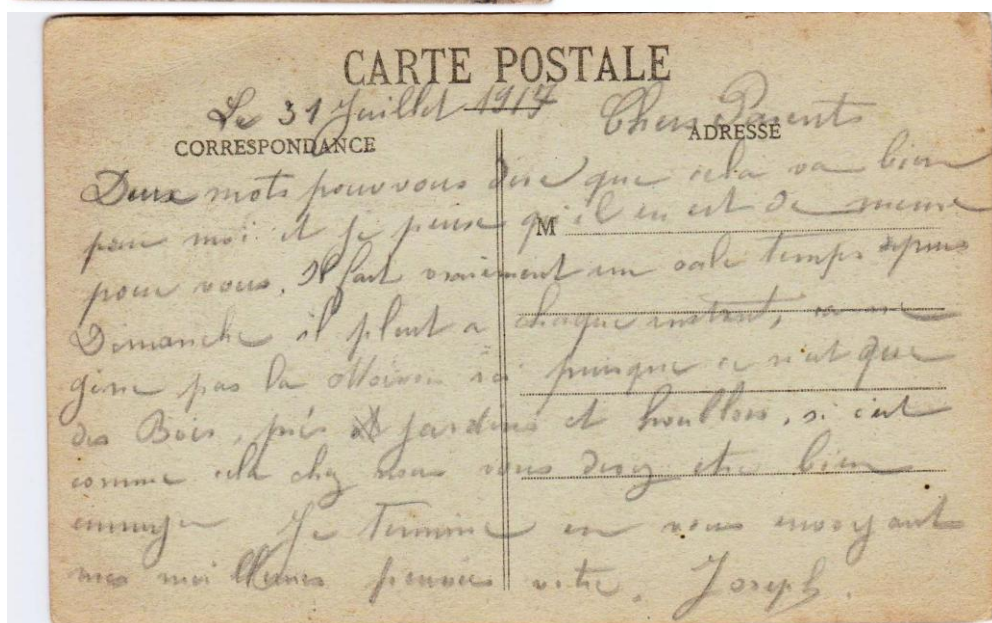 CARTE POSTALE
Le 31 Juillet 1917 Chers Parents
CORRESPONDANCE ADRESSE
Deux mots pour vous dire que cela va bien
pour moi et je pense qu'il en est de meme
M
pour vous. Il fait vraiment un sale temps depuis
Dimanche il pleut a chaque instant, ca ne
gene pas la Moisson ici puisque ce n'est que
des Bois, prés et jardins et houblons, si c'est
comme cela chez nous vous devez etre bien
ennuyer Je termine en vous envoyant
mes meilleures pensées votre. Joseph.